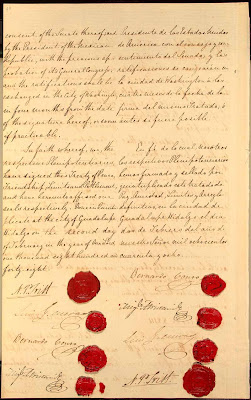 consent of the Senate thereof; and
by the President of the Mexican
Republic, with the previous ap-
probation of its General Congress;
and the ratifications shall be
exchanged in the City of Washington,
in four months from the date
of the signature hereof, or sooner
if practicable.
In faith whereof, we, the
respective Plenipotentiaries,
have signed this Treaty of Peace,
Friendship, Limits and Settlement,
and have hereunto affixed our
seals respectively. Done in
at the City of Guadalupe
Hidalgo on the second day
of February in the year of
one thousand eight hundred and
forty eight.
N. P. Trist
Luis G. Cuevas
Bernardo Couto
Migl Atristain
Presidente de los Estados Unidos
de America, con el consejo y con-
sentimiento del Senado; y las
ratificaciones se cangearan en
la ciudad de Washington a los
cuatro meses de la fecha de la
firma del mismo Tratado, ó
antes si fuere posible.
En fe de lo cual, Nosotros
los respectivos Plenipotenciarios
hemos firmado y sellado por
quintuplicado este tratado de
Paz, Amistad, Limites y Arreglo
en la ciudad de
Guadalupe Hidalgo el dia
dos de Febrero del año de
mil ochocientos
cuarenta y ocho.
Bernardo Couto
Migl Atristain
Luis G. Cuevas
N. P. Trist